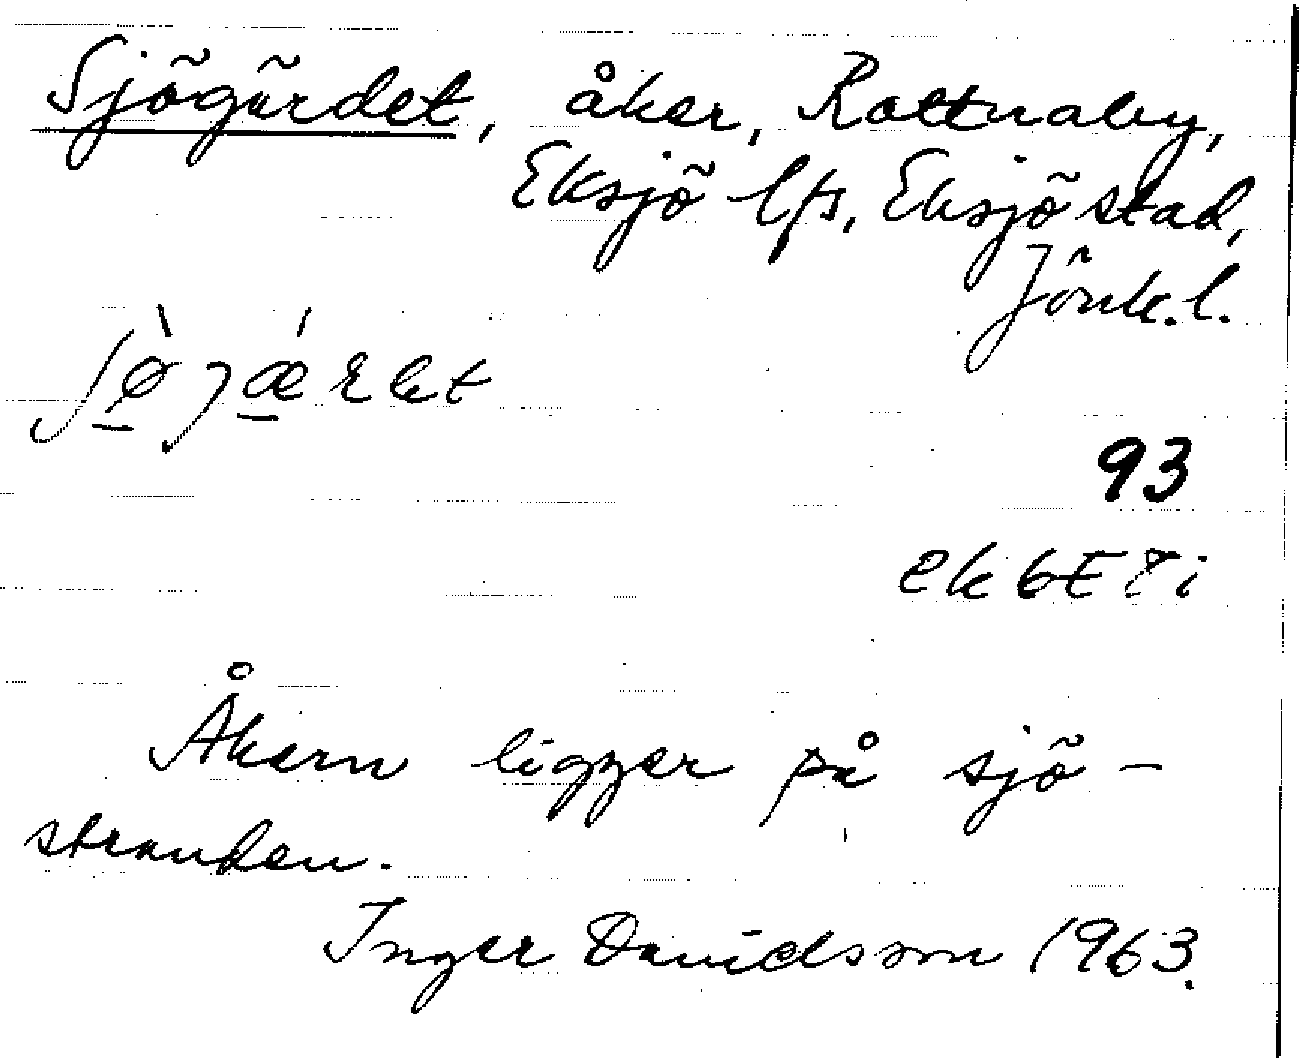 Sjögärdet, åker, Rattnaby,
Eksjö lfs, Eksjö stad,
Jönk.l.
93
Åkern ligger på sjö-
stranden.
Inger Davidsson 1963.